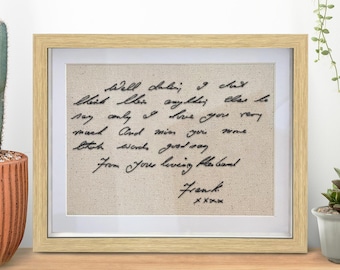 Well darling I don't
think theirs anything else to
say only I love you very
much And miss you more
than words good say
From your loving Husband
Frank
xxxx